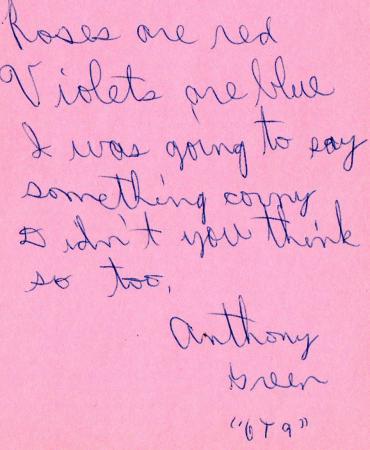 Roses are red
Violets are blue
I was going to say
something corny
Didn't you think
so too.
Anthony
Green